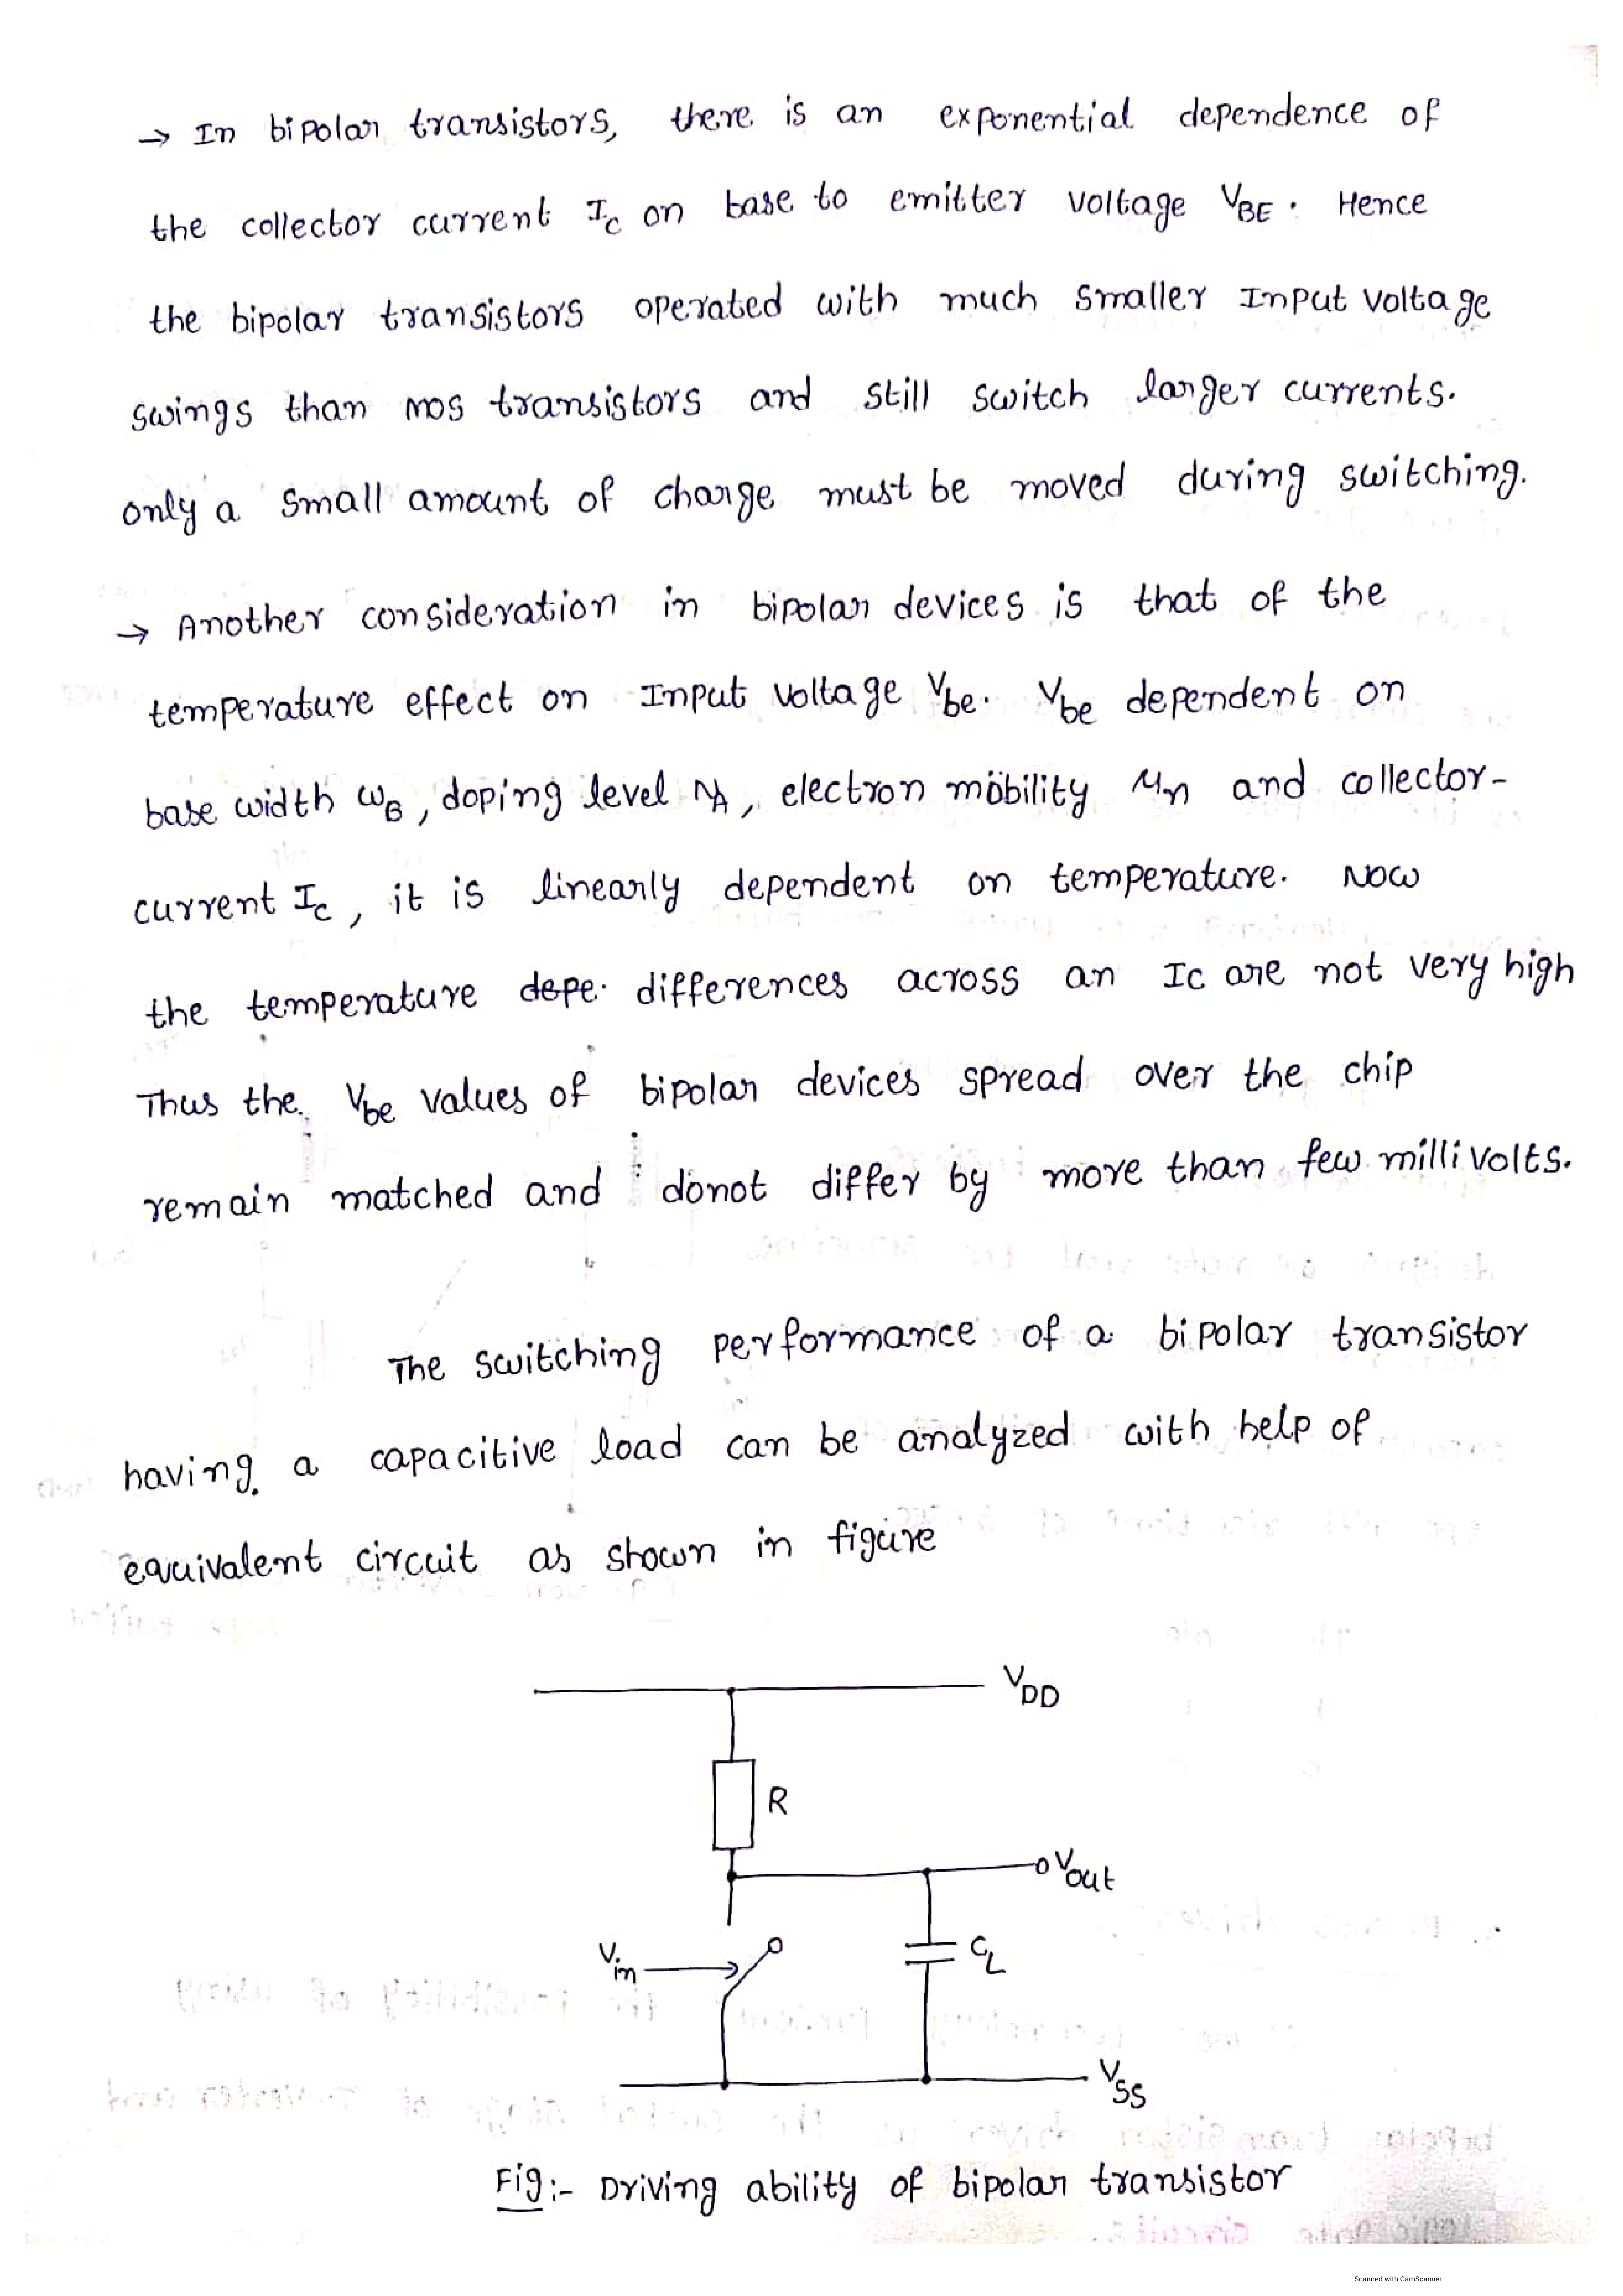 → In bipolar transistors, there is an exponential dependence of
the collector current Ic on base to emitter voltage VBE. Hence
the bipolar transistors operated with much smaller Input voltage
swings than mos transistors and still switch larger currents.
only a small amount of charge must be moved during switching.
→ Another consideration in bipolar devices is that of the
temperature effect on Input voltage Vbe. Vbe dependent on
base width WB, doping level NA, electron mobility Mn and collector-
current Ic, it is linearly dependent on temperature. Now
the temperature depe. differences across an Ic are not very high
Thus the Vbe values of bipolar devices spread over the chip
remain matched and donot differ by more than few millivolts.
The switching performance of a bipolar transistor
having a capacitive load can be analyzed with help of
equivalent circuit as shown in figure
VDD
R
Vout
Vin
CL
VSS
Fig:- Driving ability of bipolar transistor
Scanned with CamScanner